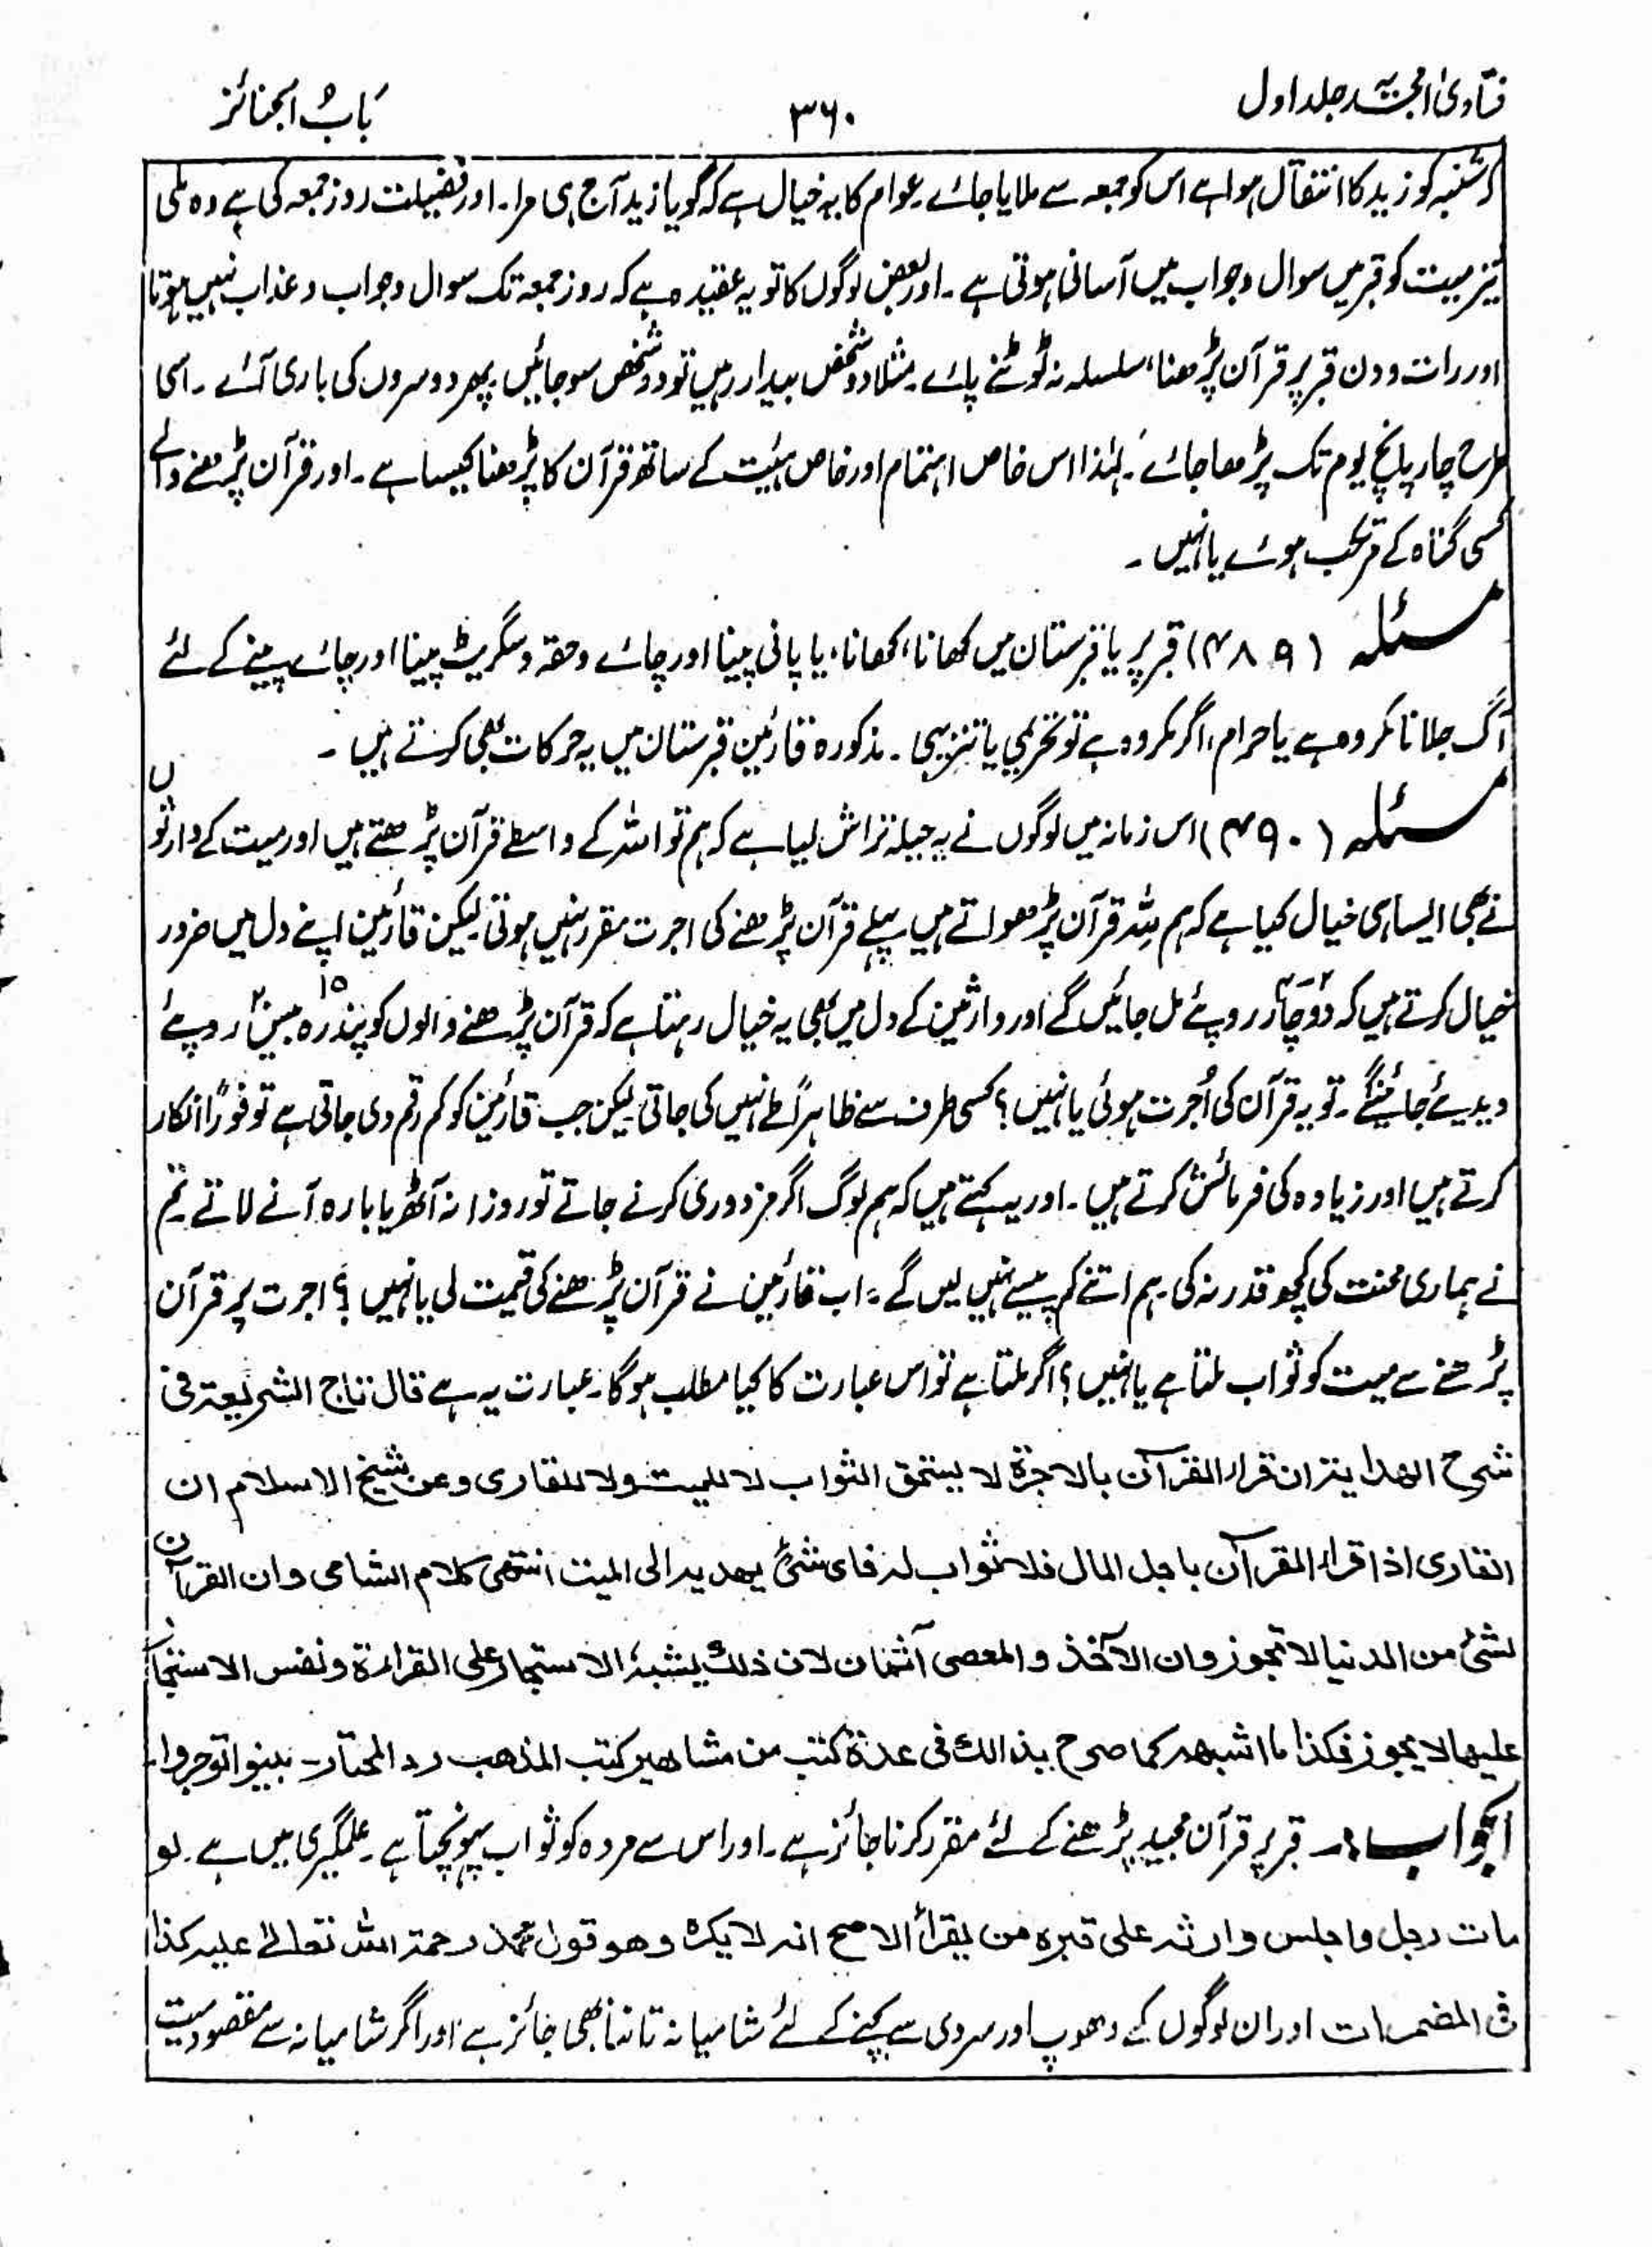 فتاویٰ امجدیہ جلد اول
۳۶۰
بَابُ الجنائز
کہ شنبہ کو زید کا انتقال ہوا ہے اس کو جمعہ سے ملایا جائے عوام کا یہ خیال ہے کہ گویا زید آج ہی مرا۔ اور فضیلت روز جمعہ کی ہے وہ ملی
نیز میت کو قبر میں سوال وجواب میں آسانی ہوتی ہے۔ اور بعض لوگوں کا تو یہ عقیدہ ہے کہ روز جمعہ تک سوال وجواب وعذاب نہیں ہوتا
اور رات و دن قبر پر قرآن پڑھنا، سلسلہ نہ ٹوٹنے پائے۔ مثلا دو شخص بیدار رہیں تو دو شخص سو جائیں پھر دوسروں کی باری آئے۔ اسی
طرح چار پانچ یوم تک پڑھا جائے۔ لہٰذا اس خاص اہتمام اور خاص ہیئت کے ساتھ قرآن کا پڑھنا کیسا ہے۔ اور قرآن پڑھنے والے
کسی گناہ کے مرتکب ہوئے یا نہیں۔
مسئلہ (۴۸۹) قبر پر یا قبرستان میں کھانا، کھانا، یا پانی پینا اور چائے وحقہ وسگریٹ پینا اور چائے پینے کے لئے
آگ جلانا مکروہ ہے یا حرام، اگر مکروہ ہے تو تحریمی یا تنزیہی۔ مذکورہ قارئین قبرستان میں یہ حرکات بھی کرتے ہیں۔
مسئلہ (۴۹۰) اس زمانہ میں لوگوں نے یہ حیلہ تراش لیا ہے کہ ہم تو اللہ کے واسطے قرآن پڑھتے ہیں اور میت کے وارثوں
نے بھی ایسا ہی خیال کیا ہے کہ ہم للہ قرآن پڑھواتے ہیں پہلے قرآن پڑھنے کی اجرت مقرر نہیں ہوتی لیکن قارئین اپنے دل میں ضرور
خیال کرتے ہیں کہ دو چار روپئے مل جائیں گے اور وارثین کے دل میں بھی یہ خیال رہتا ہے کہ قرآن پڑھنے والوں کو پندرہ ۱۵ بیس روپئے
دیدیئے جائینگے۔ تو یہ قرآن کی اُجرت ہوئی یا نہیں؟ کسی طرف سے ظاہراً طے نہیں کی جاتی لیکن جب قارئین کو کم رقم دی جاتی ہے تو فوراً انکار
کرتے ہیں اور زیادہ کی فرمائش کرتے ہیں۔ اور یہ کہتے ہیں کہ ہم لوگ اگر مزدوری کرنے جاتے تو روزانہ آٹھ یا بارہ آنے لاتے تم
نے ہماری محنت کی کچھ قدر نہ کی ہم اتنے کم پیسے نہیں لیں گے۔ اب قارئین نے قرآن پڑھنے کی قیمت لی یا نہیں؟ اجرت پر قرآن
پڑھنے سے میت کو ثواب ملتا ہے یا نہیں؟ اگر ملتا ہے تو اس عبارت کا کیا مطلب ہوگا۔ عبارت یہ ہے قال تاج الشریعۃ فی
شرح الھدایۃ ان قراء القرآن بالاجرۃ لا یستحق الثواب لا للمیت ولا للقاری وعن شیخ الاسلام ان
القاری اذا قراء القرآن باجل المال فلا ثواب لہ فای شئ یھدیہ الی المیت انتھی کلام الشامی وان القرآن
لشئ من الدنیا لا تجوز وان الآخذ والمعطی آثمان لان ذلک یشبہ الاستیجار علی القراءۃ ونفس الاستیجار
علیھا لا یجوز فکذا ما اشبھہ کما صرح بذالک فی عدۃ کتب من مشاھیر کتب المذھب رد المحتار۔ بینوا توجروا۔
الجواب :۔ قبر پر قرآن مجید پڑھنے کے لئے مقرر کرنا جائز ہے۔ اور اس سے مردہ کو ثواب پہونچتا ہے۔ علمگیری میں ہے۔ لو
مات رجل واجلس وارثہ علی قبرہ من یقرأ الاصح انہ لا یکرہ وھو قول محمد رحمۃ اللہ تعالےٰ علیہ کذا
فی المضمرات اور ان لوگوں کے دھوپ اور سردی سے بچنے کے لئے شامیانہ تاننا بھی جائز ہے اور اگر شامیانہ سے مقصود میت